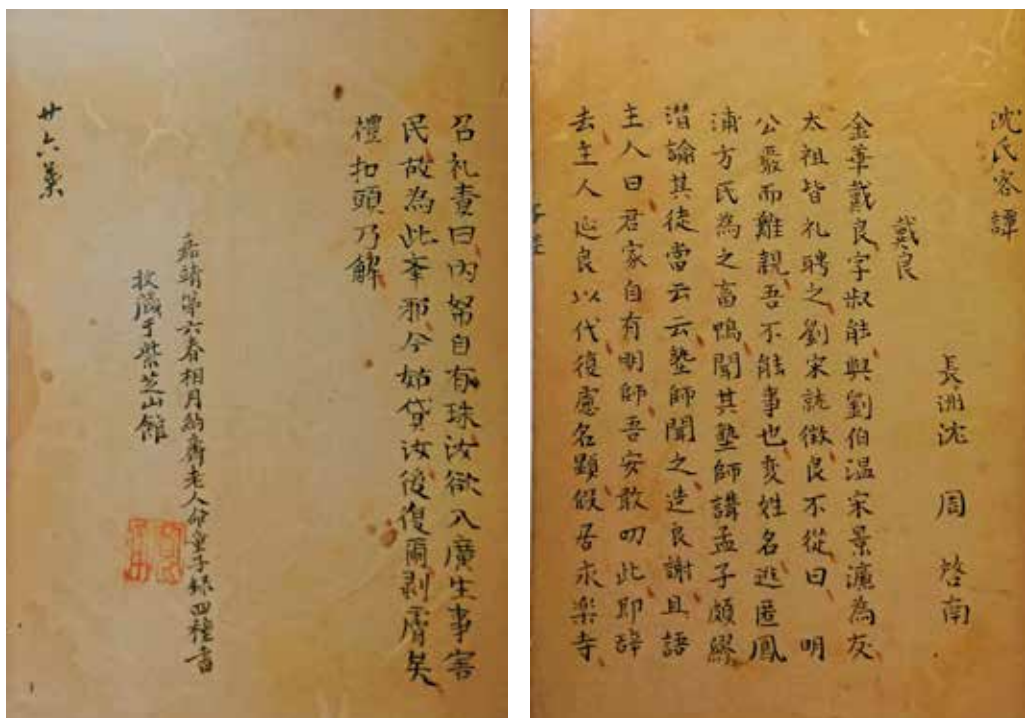 沈氏客譚
長洲沈 周 啓南
戴良
金華戴良字叔能與劉伯温宋景濂為友
太祖皆礼聘之劉宋就徵良不從曰 明
公嚴而難親吾不能事也変姓名逃匿鳳
浦方民為之畜鴨聞其塾師講孟子頗繆
潛諭其徒當云云塾師聞之造良謝且語
主人曰君家自有明師吾安敢叨此即辞
去主人延良以代復慮名顯假居永樂寺
召礼責曰内帑自有珠汝欲入廣生事害
民故為此牽邪今姑貸汝後復爾剥膚矣
禮扣頭乃解
嘉靖第六春相月約齋老人命童子録四種書
收藏于紫芝山館
廿六葉